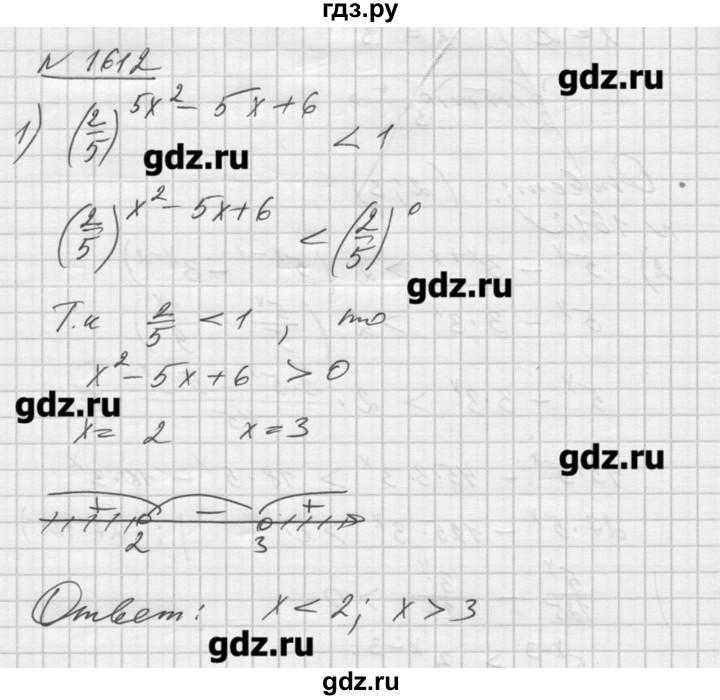 гдз.ру
N 1612
gdz.ru
1) (2/5)^(5x²-5x+6) < 1
gdz.ru
(2/5)^(x²-5x+6) < (2/5)^0
gdz.ru
Т.к 2/5 < 1, то
x²-5x+6 > 0
gdz.ru
x= 2 x=3
gdz.ru
+ - +
2 3
Ответ: x<2; x>3
gdz.ru
gdz.ru